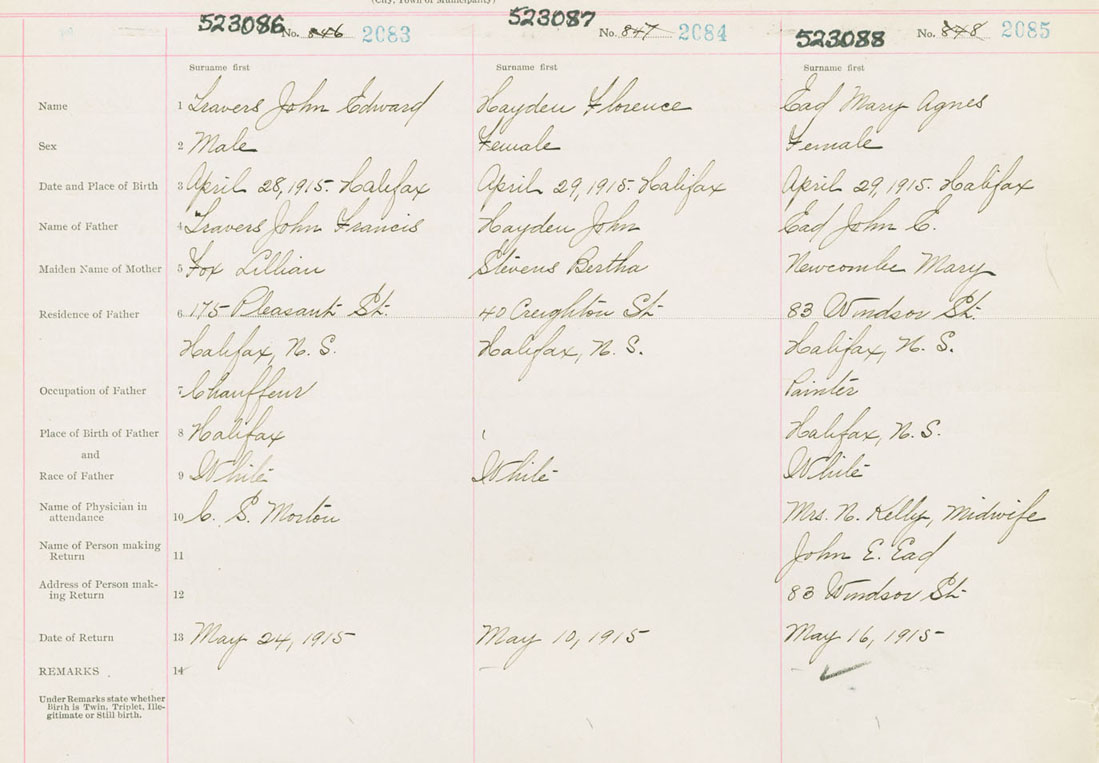 (City, Town or Municipality)
523086 No. 846 2083 523087 No. 847 2084 523088 No. 848 2085
Surname first Surname first Surname first
Name 1 Travers John Edward Hayden Florence Ead Mary Agnes
Sex 2 Male Female Female
Date and Place of Birth 3 April 28, 1915. Halifax April 29, 1915. Halifax April 29, 1915. Halifax
Name of Father 4 Travers John Francis Hayden John Ead John E.
Maiden Name of Mother 5 Fox Lillian Stevens Bertha Newcombe Mary
Residence of Father 6 175 Pleasant St. 40 Creighton St. 83 Windsor St.
Halifax, N. S. Halifax, N. S. Halifax, N. S.
Occupation of Father 7 Chauffeur Painter
Place of Birth of Father 8 Halifax Halifax, N. S.
and
Race of Father 9 White White White
Name of Physician in
attendance 10 C. S. Morton Mrs. N. Kelly, Midwife
Name of Person making
Return 11 John E. Ead
Address of Person mak-
ing Return 12 83 Windsor St.
Date of Return 13 May 24, 1915 May 10, 1915 May 16, 1915
REMARKS 14
Under Remarks state whether
Birth is Twin, Triplet, Ille-
gitimate or Still birth.